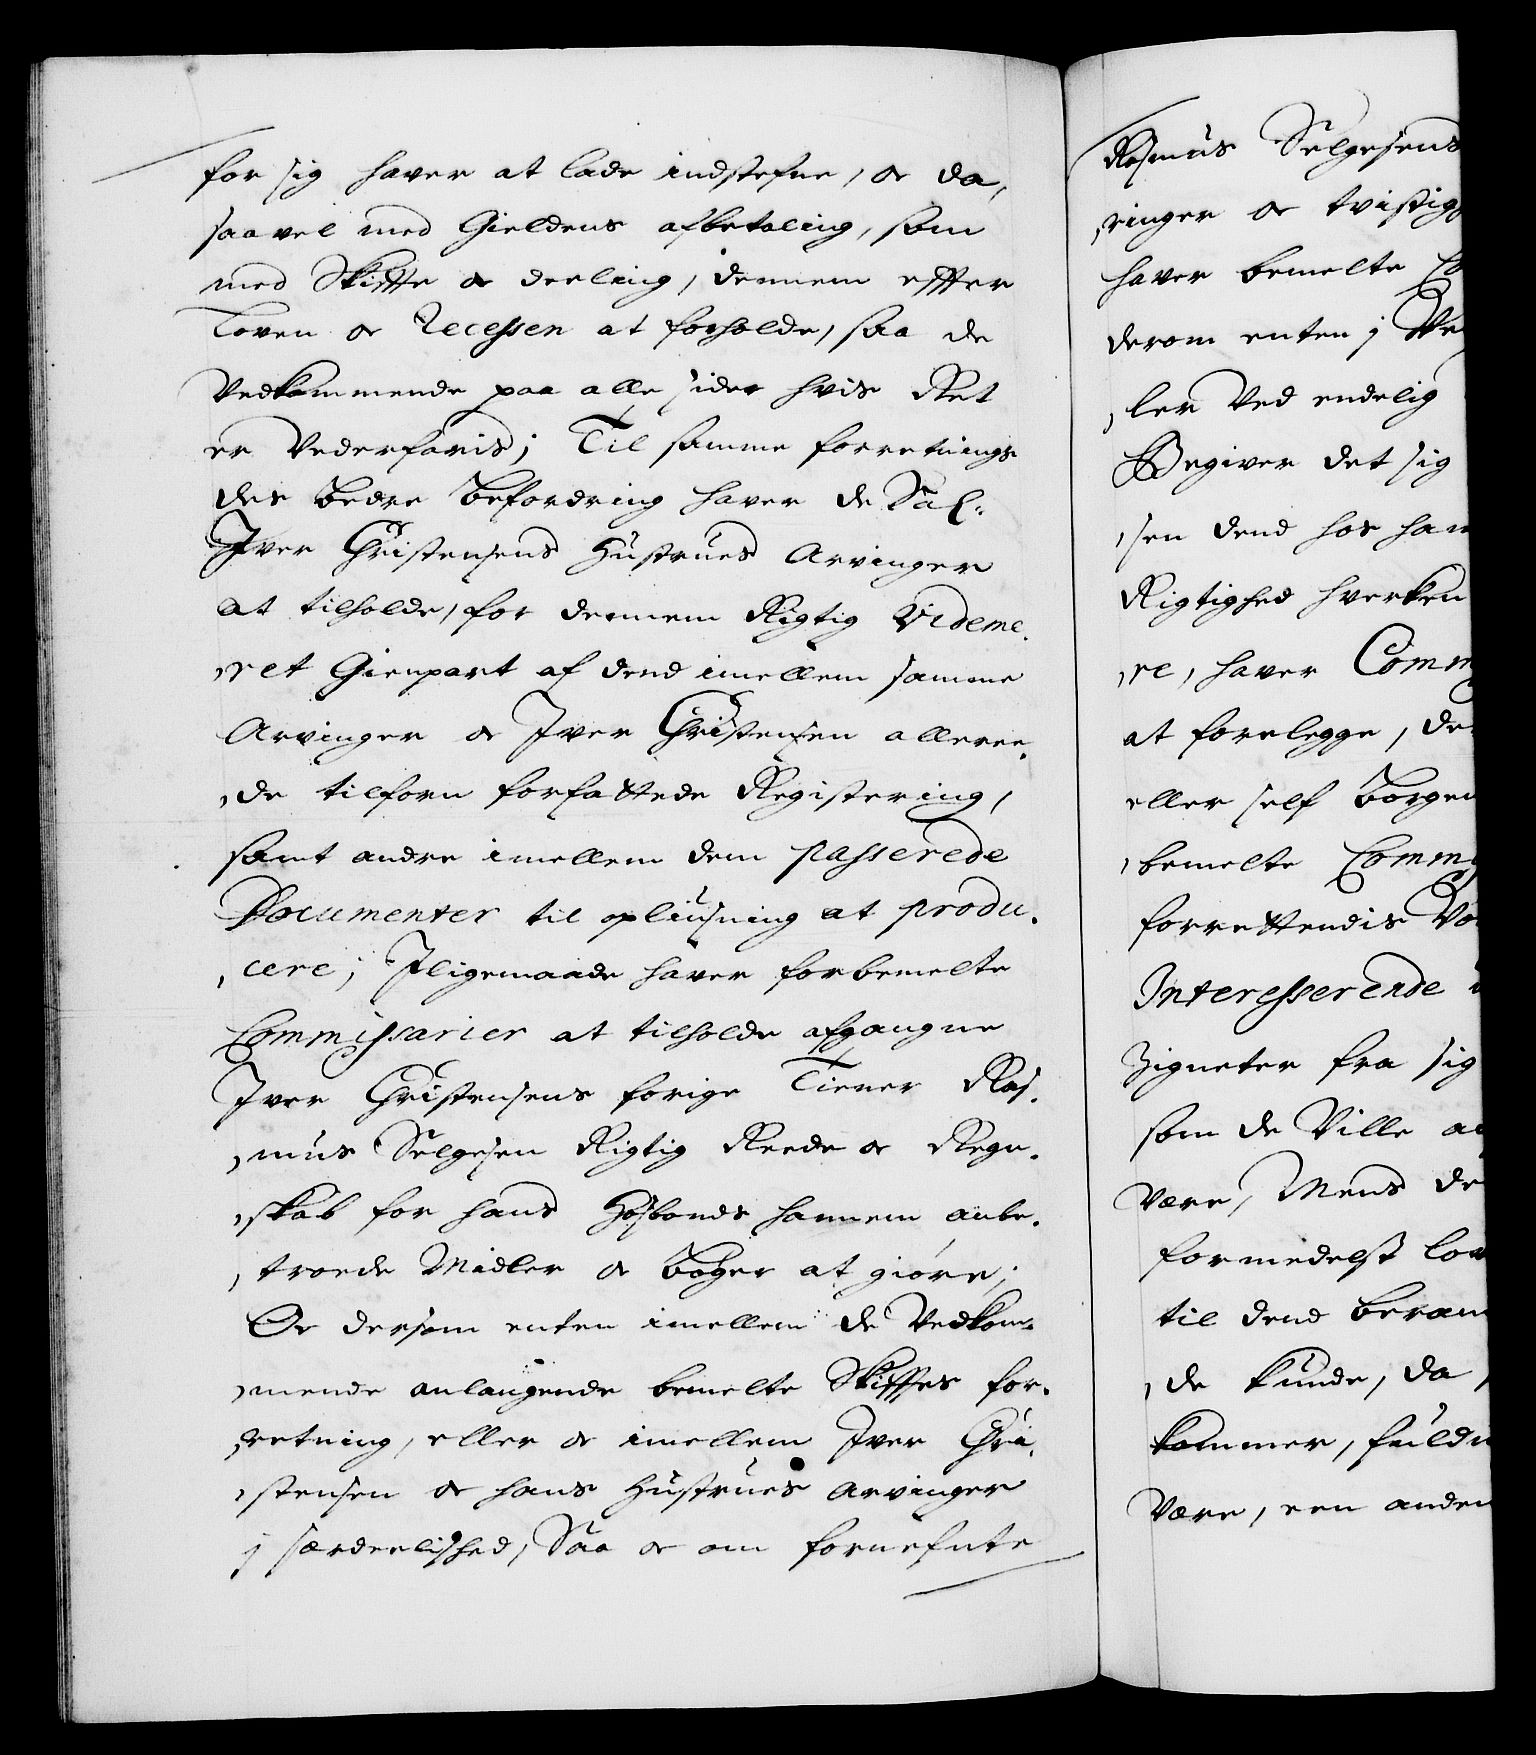 for sig hafver at lade indstefne, oc da,
saavel med Gieldens afbetaling, som
med Skiffte oc deeling, dennem effter
Loven oc Recessen at forholde, saa de
Vedkommende paa alle sider hvis Ret
er Vederfaris; Til samme forretnings
des bedre befordring hafver de Sal:
Iver Christensens Hustrues Arvinger
at tilholde, for dennem Rigtig Videme,
,ret Gienpart af dend imellem samme
Arvinger oc Iver Christensen alleree,
,de tilforn forfattede Registering,
samt andre imellem dem passerede
Documenter til opliusning at produ,
,cere; Iligemaade hafver forbemelte
Commissarier at tilholde afgangne
Iver Christensens forige Tiener Ras,
,mus Selgesen Rigtig Reede oc Regn,
,skab for hans Hosbonds hannem anbe,
,troede Midler oc bøger at giøre;
Oc dersom enten imellem de Vedkom,
,mende anlangende bemelte Skifftes for,
,retning, eller oc imellem Iver Chri,
,stensen oc hans Hustrues Arvinger
j særdeelished, Saa oc om fornefnte
Rasmus Selgesens
,ringer oc tvistig
hafver bemelte Co
derom enten j Ve
,ler Ved endelig
Begiver det sig
,sen dend hos ham
Rigtighed hverken
,re, hafver Comm
at forelegge, de
eller self borgen
,bemelte Commi
forrettendis Vo
Interesserende
Zigneter fra sig
som de Ville a
være, Mens de
formedelst lov
til dend beram
,de kunde, da
kommer, fuld
være, een anden